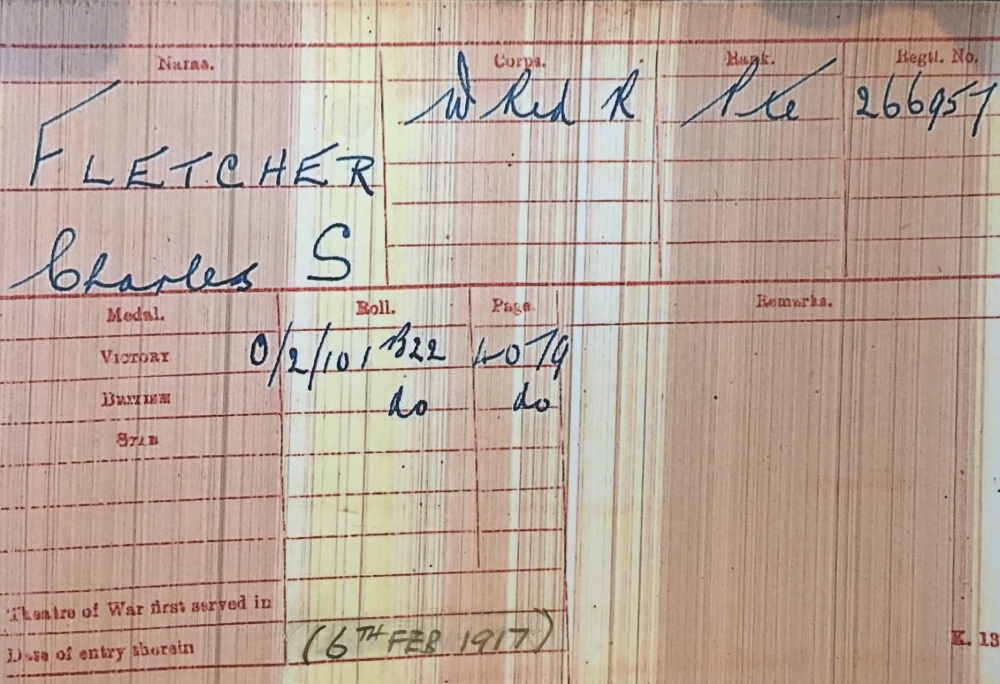 Name. Corps. Rank. Regtl. No.
W Rid R Pte 266957
FLETCHER
Charles S
Medal. Roll. Page Remarks.
VICTORY O/2/101 B22 4079
BRITISH do do
STAR
Theatre of War first served in
Date of entry therein (6TH FEB 1917)
K. 13